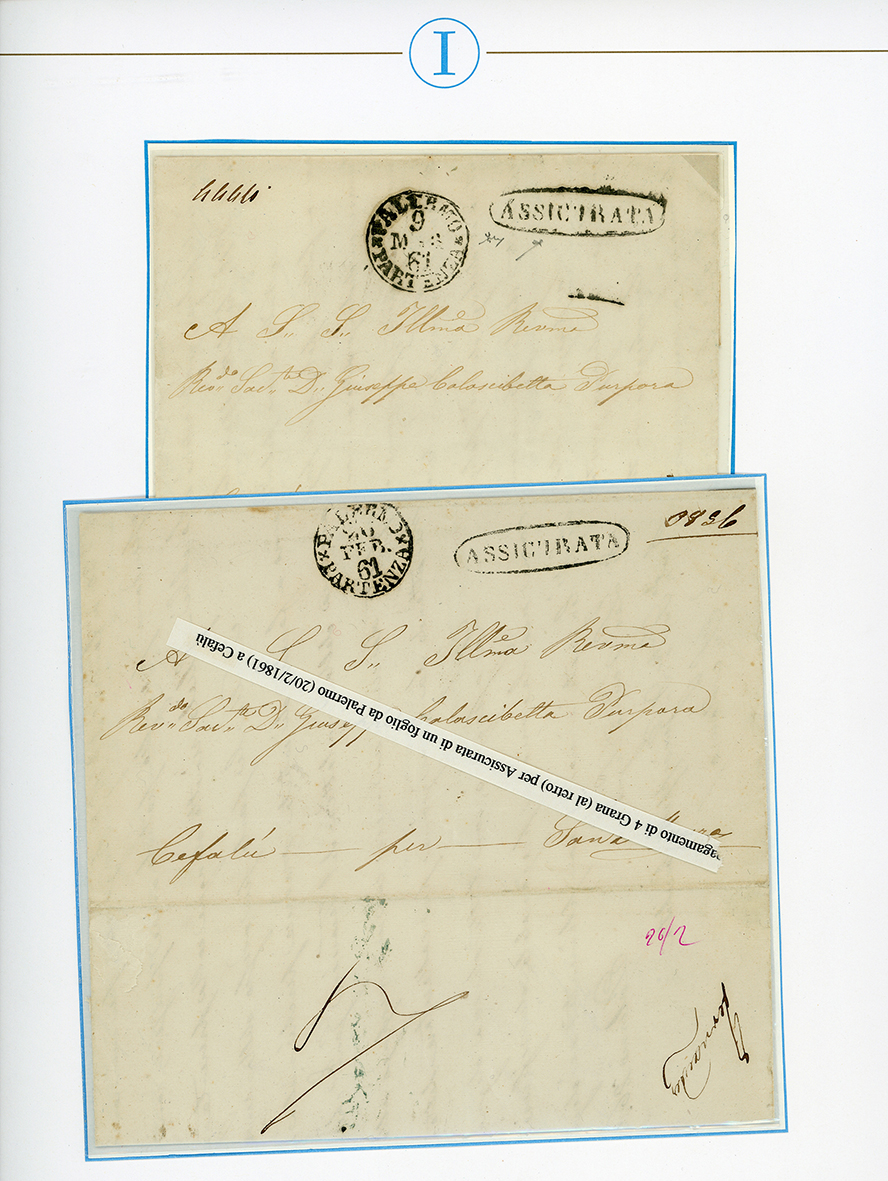 I
4440
PALERMO
9
MAR
61
PARTENZA
ASSICURATA
A S. S. Illma Revma
Revdo Sacte D. Giuseppe Calascibetta Purpora
PALERMO
20
FEB.
61
PARTENZA
ASSICURATA
0836
A S. S. Illma Revma
Revdo Sacte D. Giuseppe Calascibetta Purpora
pagamento di 4 Grana (al retro) per Assicurata di un foglio da Palermo (20/2/1861) a Cefalù
Cefalú per
20/2